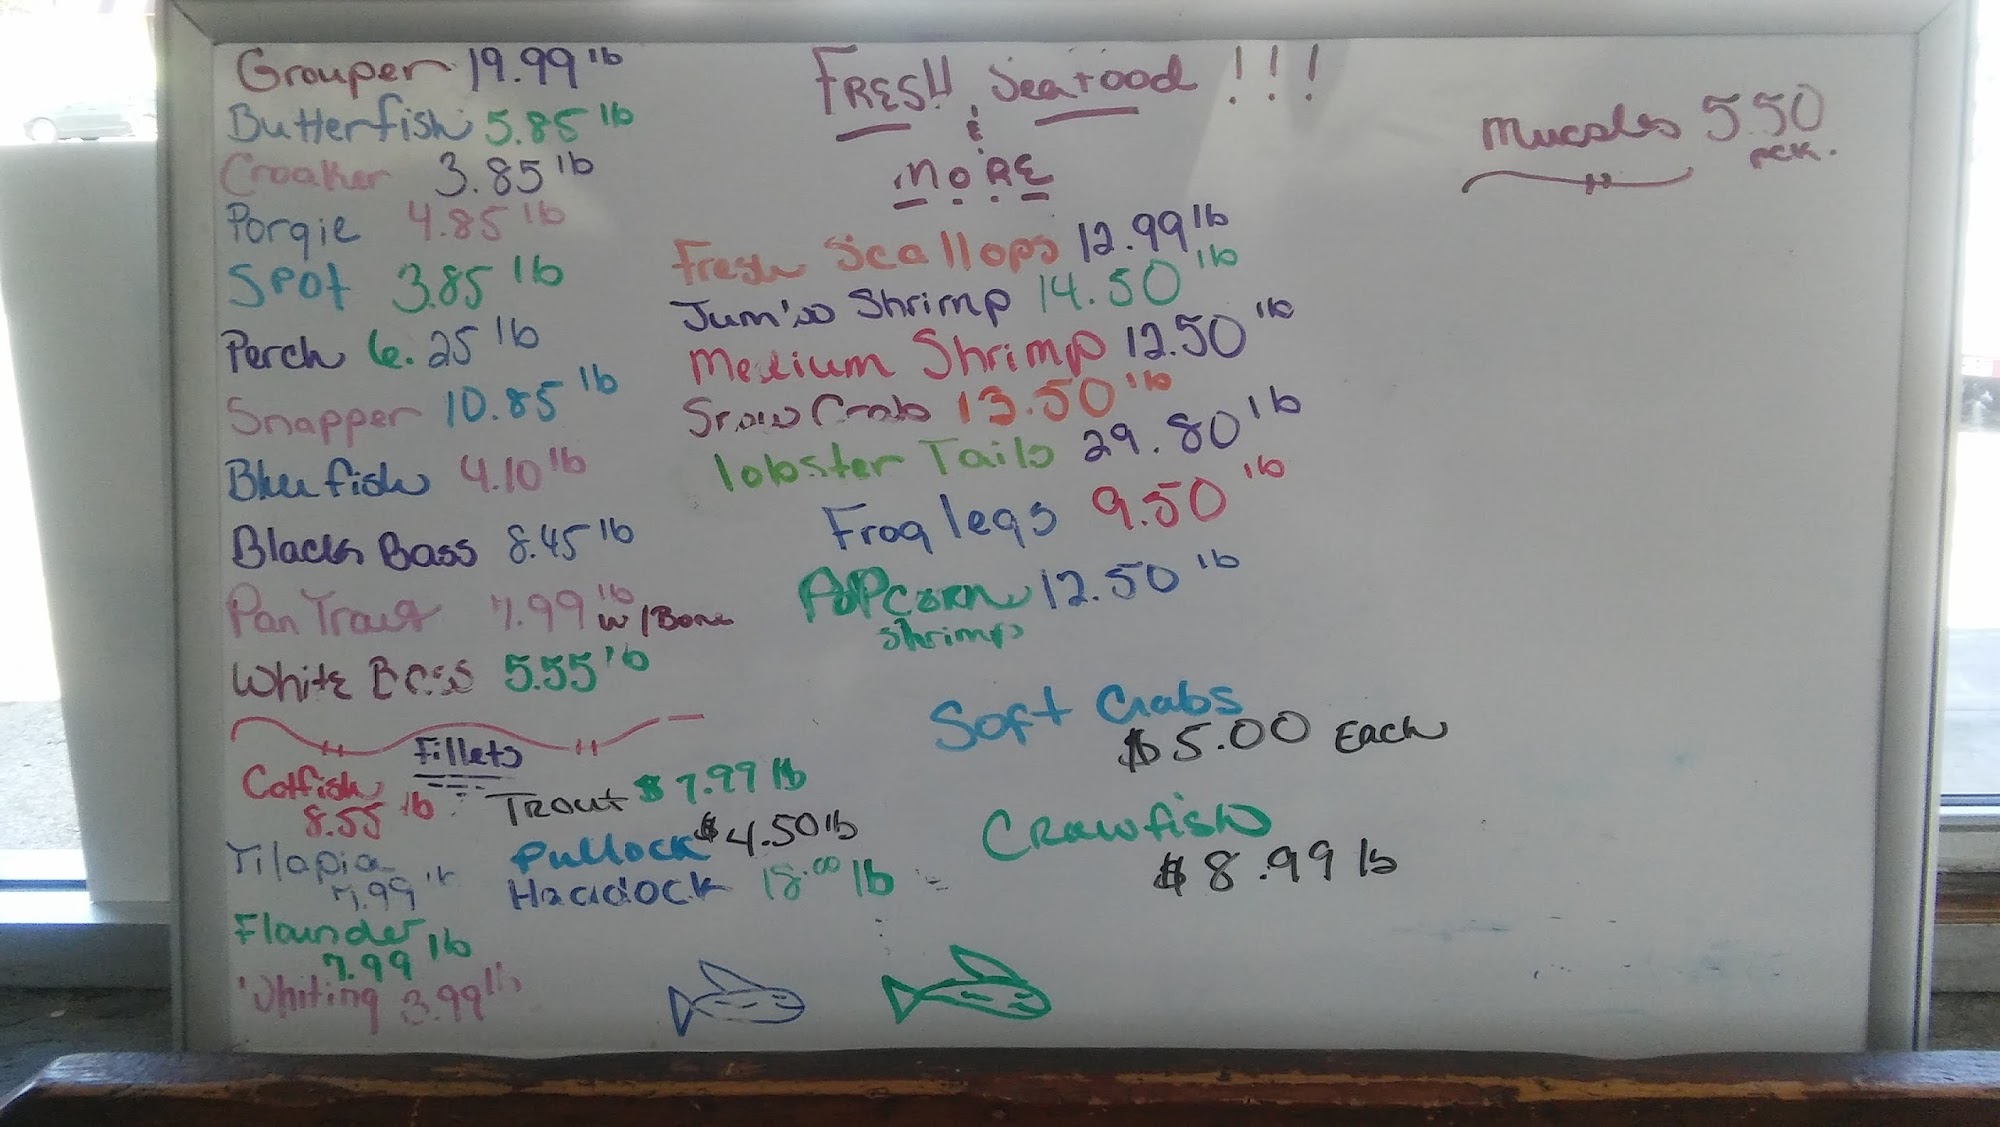 Grouper 19.99 lb
Butterfish 5.85 lb
Croaker 3.85 lb
Porgie 4.85 lb
Spot 3.85 lb
Perch 6.25 lb
Snapper 10.85 lb
Bluefish 4.10 lb
Black Bass 8.45 lb
Pan Trout 7.99 lb w/Bone
White Bass 5.55 lb
Fillets
Catfish
8.55 lb
Tilapia
7.99 lb
Flounder
7.99 lb
Whiting 3.99 lb
Trout $7.99 lb
Pullock $4.50 lb
Haddock 18.00 lb
FRESH Seafood !!!
&
MORE
Fresh Scallops 12.99 lb
Jumbo Shrimp 14.50 lb
Medium Shrimp 12.50 lb
Snow Crab 13.50 lb
lobster Tails 29.80 lb
Frog legs 9.50 lb
POPCORN 12.50 lb
Shrimp
Soft Crabs
$5.00 Each
Crawfish
$8.99 lb
Mucsles 5.50
PCK.